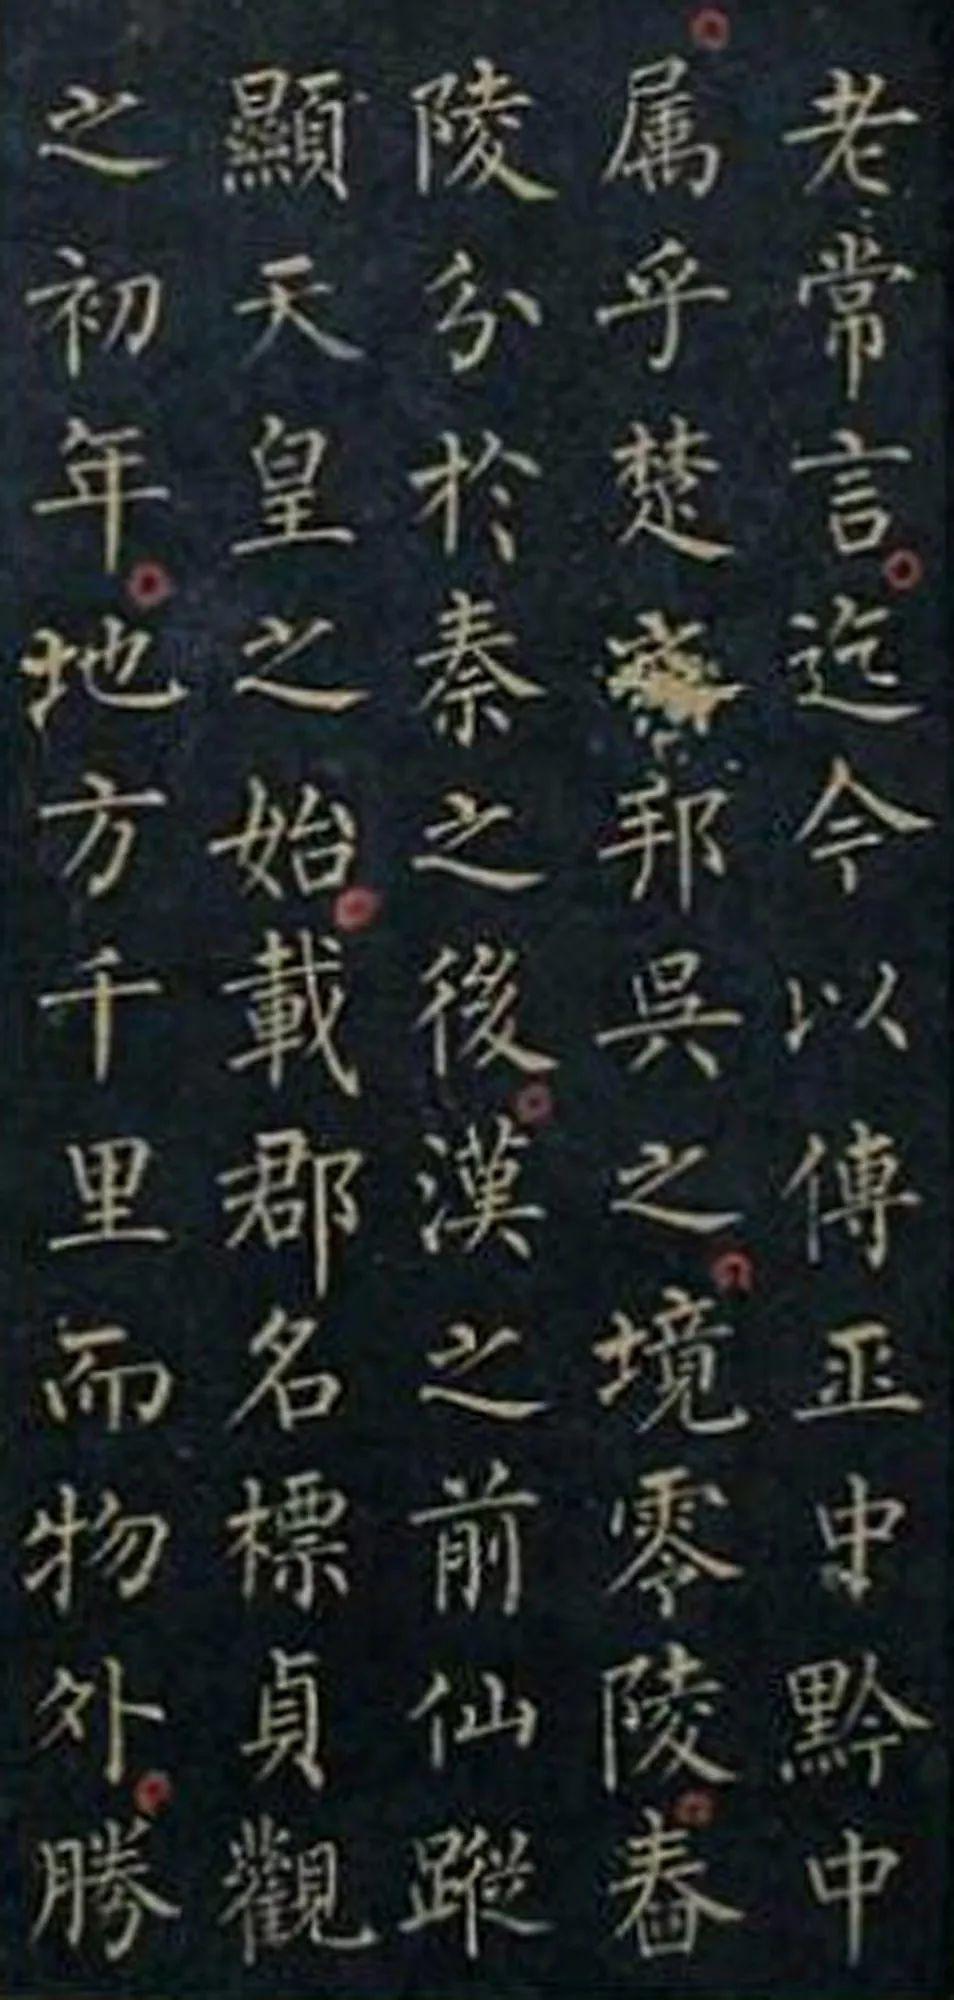 老常言迄今以傳正中黔中
属乎楚邦吳之境零陵舂
陵分於秦之後漢之前仙蹤
顯天皇之始載郡名標貞觀
之初年地方千里而物外勝